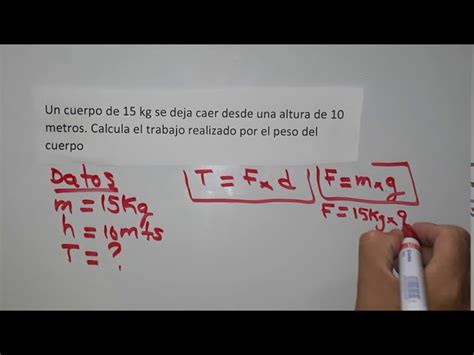 Un cuerpo de 15 kg se deja caer desde una altura de 10
metros. Calcula el trabajo realizado por el peso del
cuerpo
Datos
m = 15Kg
h = 10mts
T = ?
T = F x d
F = m x g
F = 15Kg x 9